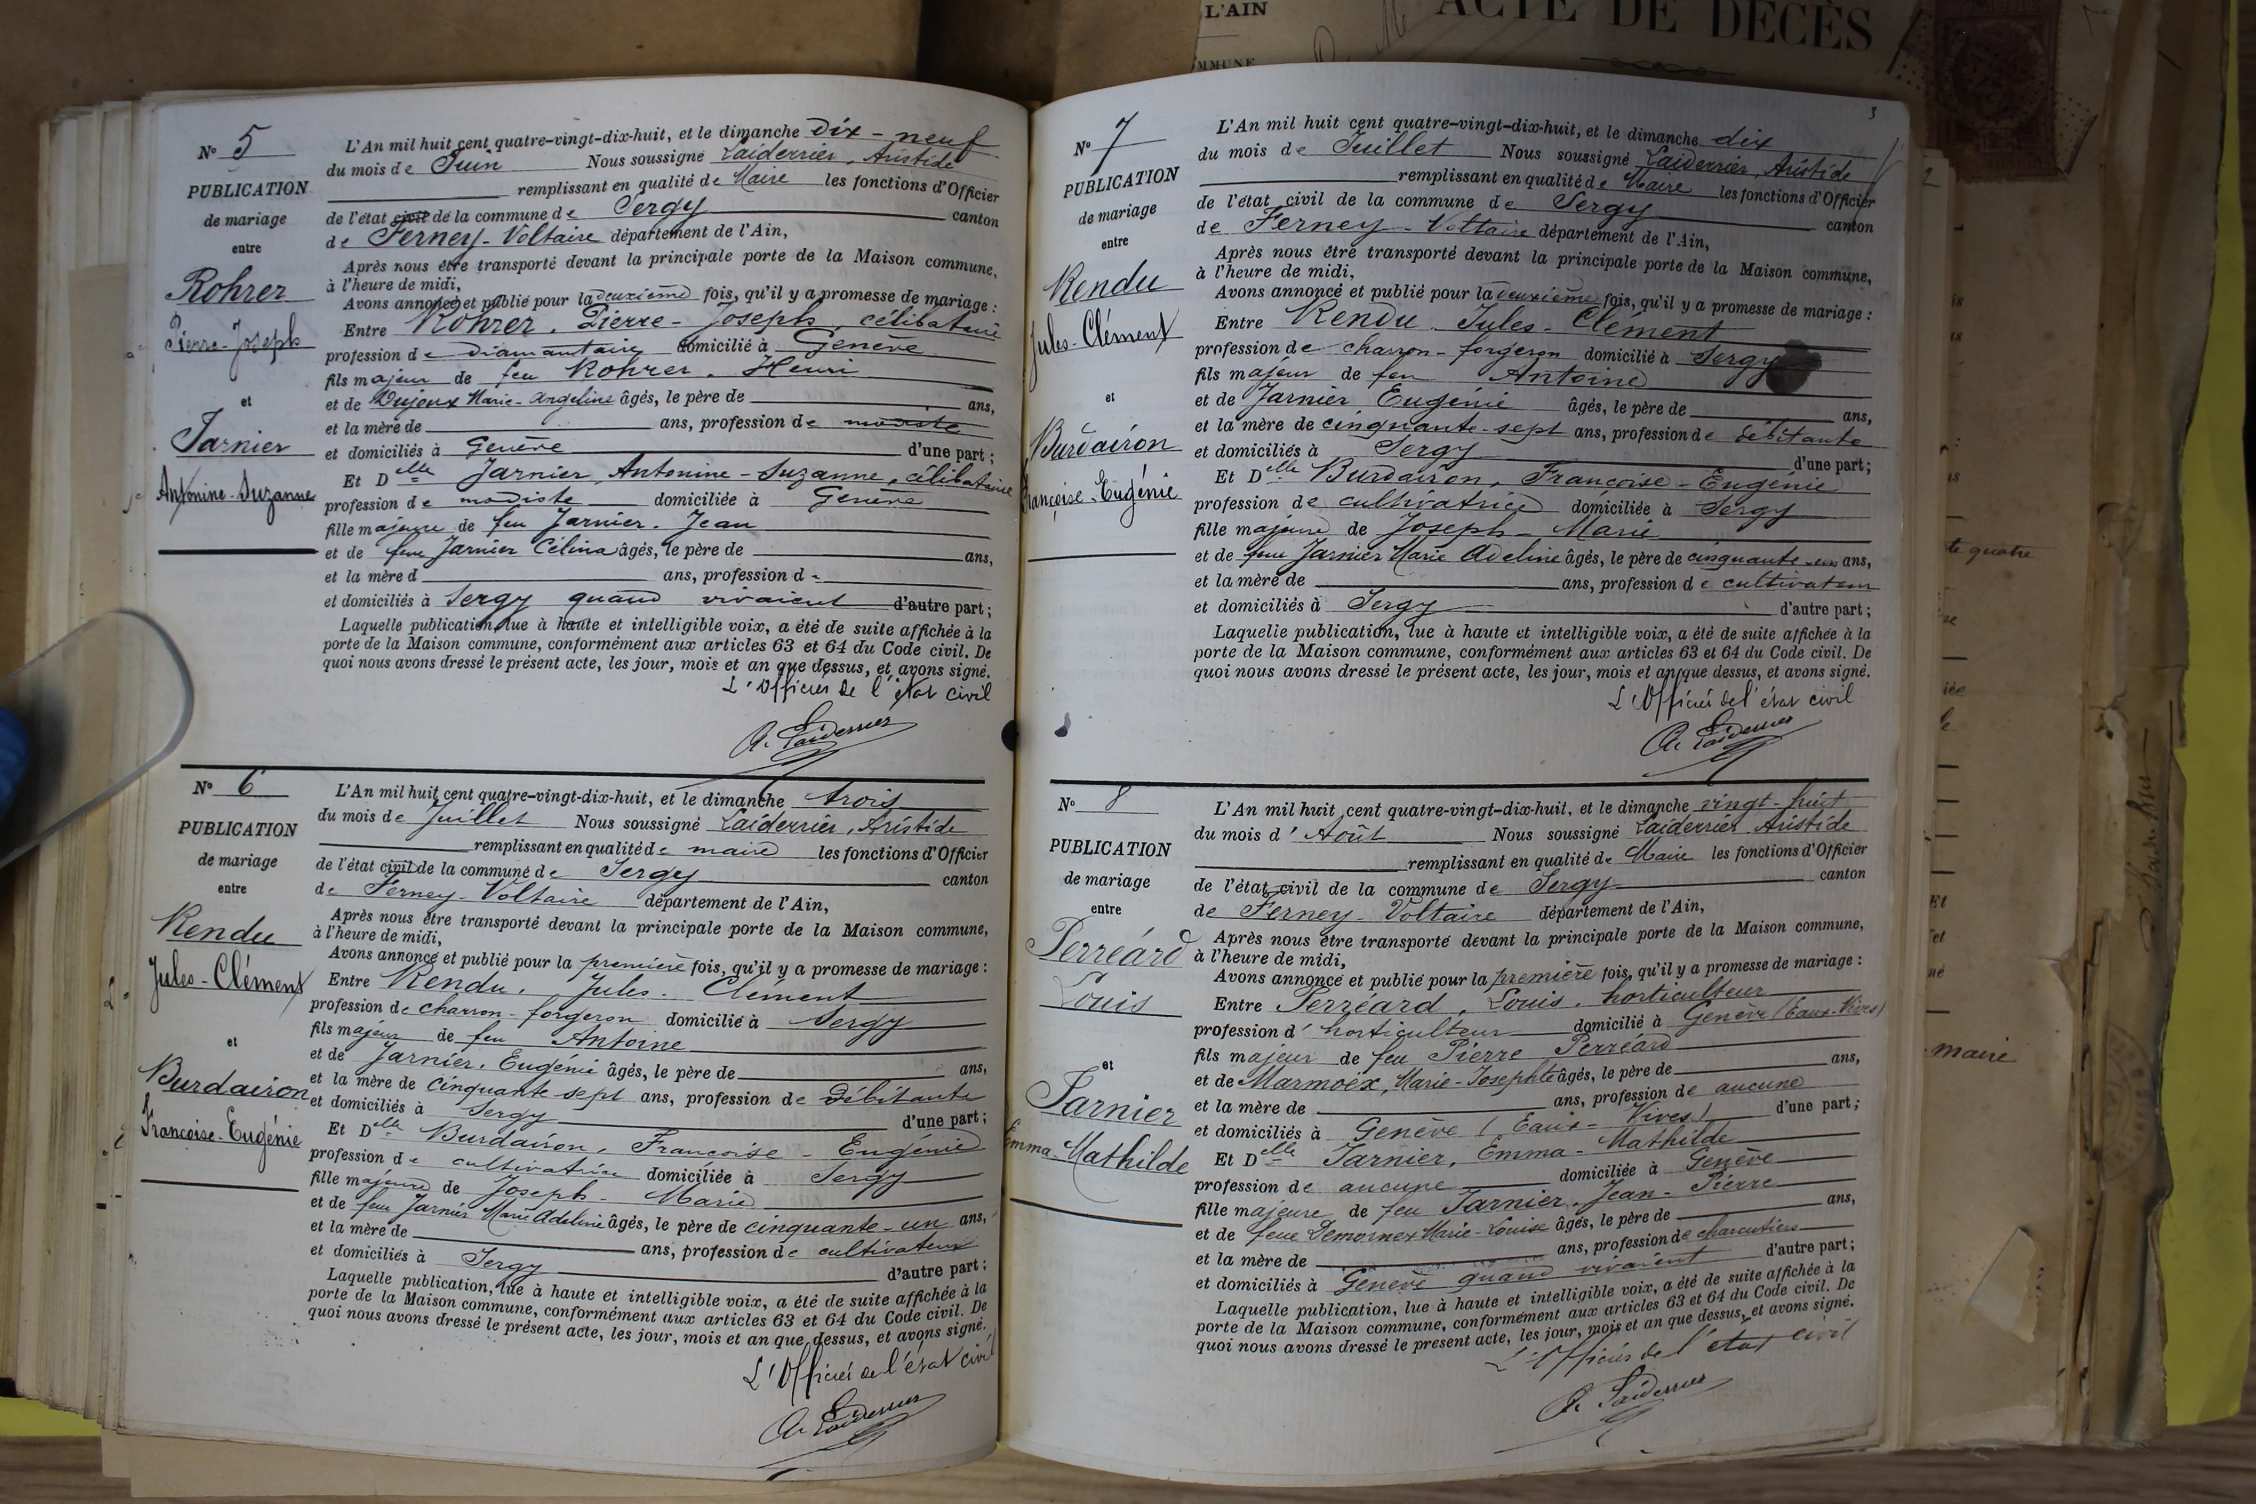 L'AIN
ACTE DE DÉCÈS
MMUNE
N° 5
PUBLICATION
de mariage
entre
Rohrer
Pierre-Joseph
et
Jarnier
Antonine-Suzanne
L'An mil huit cent quatre-vingt-dix-huit, et le dimanche dix-neuf
du mois de Juin Nous soussigné Laiderrier, Aristide
remplissant en qualité de Maire les fonctions d'Officier
de l'état civil de la commune de Sergy canton
de Ferney-Voltaire département de l'Ain,
Après nous être transporté devant la principale porte de la Maison commune,
à l'heure de midi,
Avons annoncé et publié pour la deuxième fois, qu'il y a promesse de mariage :
Entre Rohrer, Pierre-Joseph, célibataire
profession de diamantaire domicilié à Genève
fils majeur de feu Rohrer, Henri
et de Dujoux Marie-Angeline âgés, le père de ans,
et la mère de ans, profession de modiste
et domiciliés à Genève d'une part ;
Et Delle Jarnier, Antonine-Suzanne, célibataire
profession de modiste domiciliée à Genève
fille majeure de feu Jarnier, Jean
et de feue Jarnier Célina âgés, le père de ans,
et la mère d ans, profession de
et domiciliés à Sergy quand vivaient d'autre part ;
Laquelle publication, lue à haute et intelligible voix, a été de suite affichée à la
porte de la Maison commune, conformément aux articles 63 et 64 du Code civil. De
quoi nous avons dressé le présent acte, les jour, mois et an que dessus, et avons signé.
L'Officier de l'état civil
A. Laiderrier
N° 6
PUBLICATION
de mariage
entre
Rendu
Jules-Clément
et
Burdairon
Françoise-Eugénie
L'An mil huit cent quatre-vingt-dix-huit, et le dimanche trois
du mois de Juillet Nous soussigné Laiderrier, Aristide
remplissant en qualité de maire les fonctions d'Officier
de l'état civil de la commune de Sergy canton
de Ferney-Voltaire département de l'Ain,
Après nous être transporté devant la principale porte de la Maison commune,
à l'heure de midi,
Avons annoncé et publié pour la première fois, qu'il y a promesse de mariage :
Entre Rendu, Jules-Clément
profession de charron-forgeron domicilié à Sergy
fils majeur de feu Antoine
et de Jarnier, Eugénie âgés, le père de ans,
et la mère de cinquante sept ans, profession de débitante
et domiciliés à Sergy d'une part ;
Et Delle Burdairon, Françoise-Eugénie
profession de cultivatrice domiciliée à Sergy
fille majeure de Joseph-Marie
et de feue Jarnier Marie Adeline âgés, le père de cinquante-un ans,
et la mère de ans, profession de cultivateur
et domiciliés à Sergy d'autre part ;
Laquelle publication, lue à haute et intelligible voix, a été de suite affichée à la
porte de la Maison commune, conformément aux articles 63 et 64 du Code civil. De
quoi nous avons dressé le présent acte, les jour, mois et an que dessus, et avons signé.
L'Officier de l'état civil
A. Laiderrier
3
N° 7
PUBLICATION
de mariage
entre
Rendu
Jules-Clément
et
Burdairon
Françoise-Eugénie
L'An mil huit cent quatre-vingt-dix-huit, et le dimanche dix
du mois de Juillet Nous soussigné Laiderrier, Aristide
remplissant en qualité de Maire les fonctions d'Officier
de l'état civil de la commune de Sergy canton
de Ferney-Voltaire département de l'Ain,
Après nous être transporté devant la principale porte de la Maison commune,
à l'heure de midi,
Avons annoncé et publié pour la deuxième fois, qu'il y a promesse de mariage :
Entre Rendu Jules-Clément
profession de charron-forgeron domicilié à Sergy
fils majeur de feu Antoine
et de Jarnier, Eugénie âgés, le père de ans,
et la mère de cinquante-sept ans, profession de débitante
et domiciliés à Sergy d'une part ;
Et Delle Burdairon, Françoise-Eugénie
profession de cultivatrice domiciliée à Sergy
fille majeure de Joseph-Marie
et de feue Jarnier Marie Adeline âgés, le père de cinquante-un ans,
et la mère de ans, profession de cultivateur
et domiciliés à Sergy d'autre part ;
Laquelle publication, lue à haute et intelligible voix, a été de suite affichée à la
porte de la Maison commune, conformément aux articles 63 et 64 du Code civil. De
quoi nous avons dressé le présent acte, les jour, mois et an que dessus, et avons signé.
L'Officier de l'état civil
A. Laiderrier
N° 8
PUBLICATION
de mariage
entre
Perréard
Louis
et
Jarnier
Emma-Mathilde
L'An mil huit cent quatre-vingt-dix-huit, et le dimanche vingt-huit
du mois d'Août Nous soussigné Laiderrier Aristide
remplissant en qualité de Maire les fonctions d'Officier
de l'état civil de la commune de Sergy canton
de Ferney-Voltaire département de l'Ain,
Après nous être transporté devant la principale porte de la Maison commune,
à l'heure de midi,
Avons annoncé et publié pour la première fois, qu'il y a promesse de mariage :
Entre Perréard, Louis, horticulteur
profession d'horticulteur domicilié à Genève (Eaux-Vives)
fils majeur de feu Pierre Perréard
et de Marmoëx, Marie-Josephte âgés, le père de ans,
et la mère de ans, profession de aucune
et domiciliés à Genève (Eaux-Vives) d'une part ;
Et Delle Jarnier, Emma-Mathilde
profession de aucune domiciliée à Genève
fille majeure de feu Jarnier, Jean-Pierre
et de feue Demornex Marie-Louise âgés, le père de ans,
et la mère de ans, profession de charcutiers
et domiciliés à Genève quand vivaient d'autre part ;
Laquelle publication, lue à haute et intelligible voix, a été de suite affichée à la
porte de la Maison commune, conformément aux articles 63 et 64 du Code civil. De
quoi nous avons dressé le présent acte, les jour, mois et an que dessus, et avons signé.
L'Officier de l'état civil
A. Laiderrier
te quatre
maire